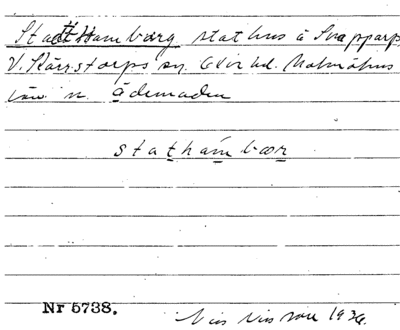 Stathamburg stathus å Svapparp
V. Kärrstorps sn. Oxie hd. Malmöhus
län n. ödemaden
stathámbœr
Nr 5738.
Nils Nilsson 1936.